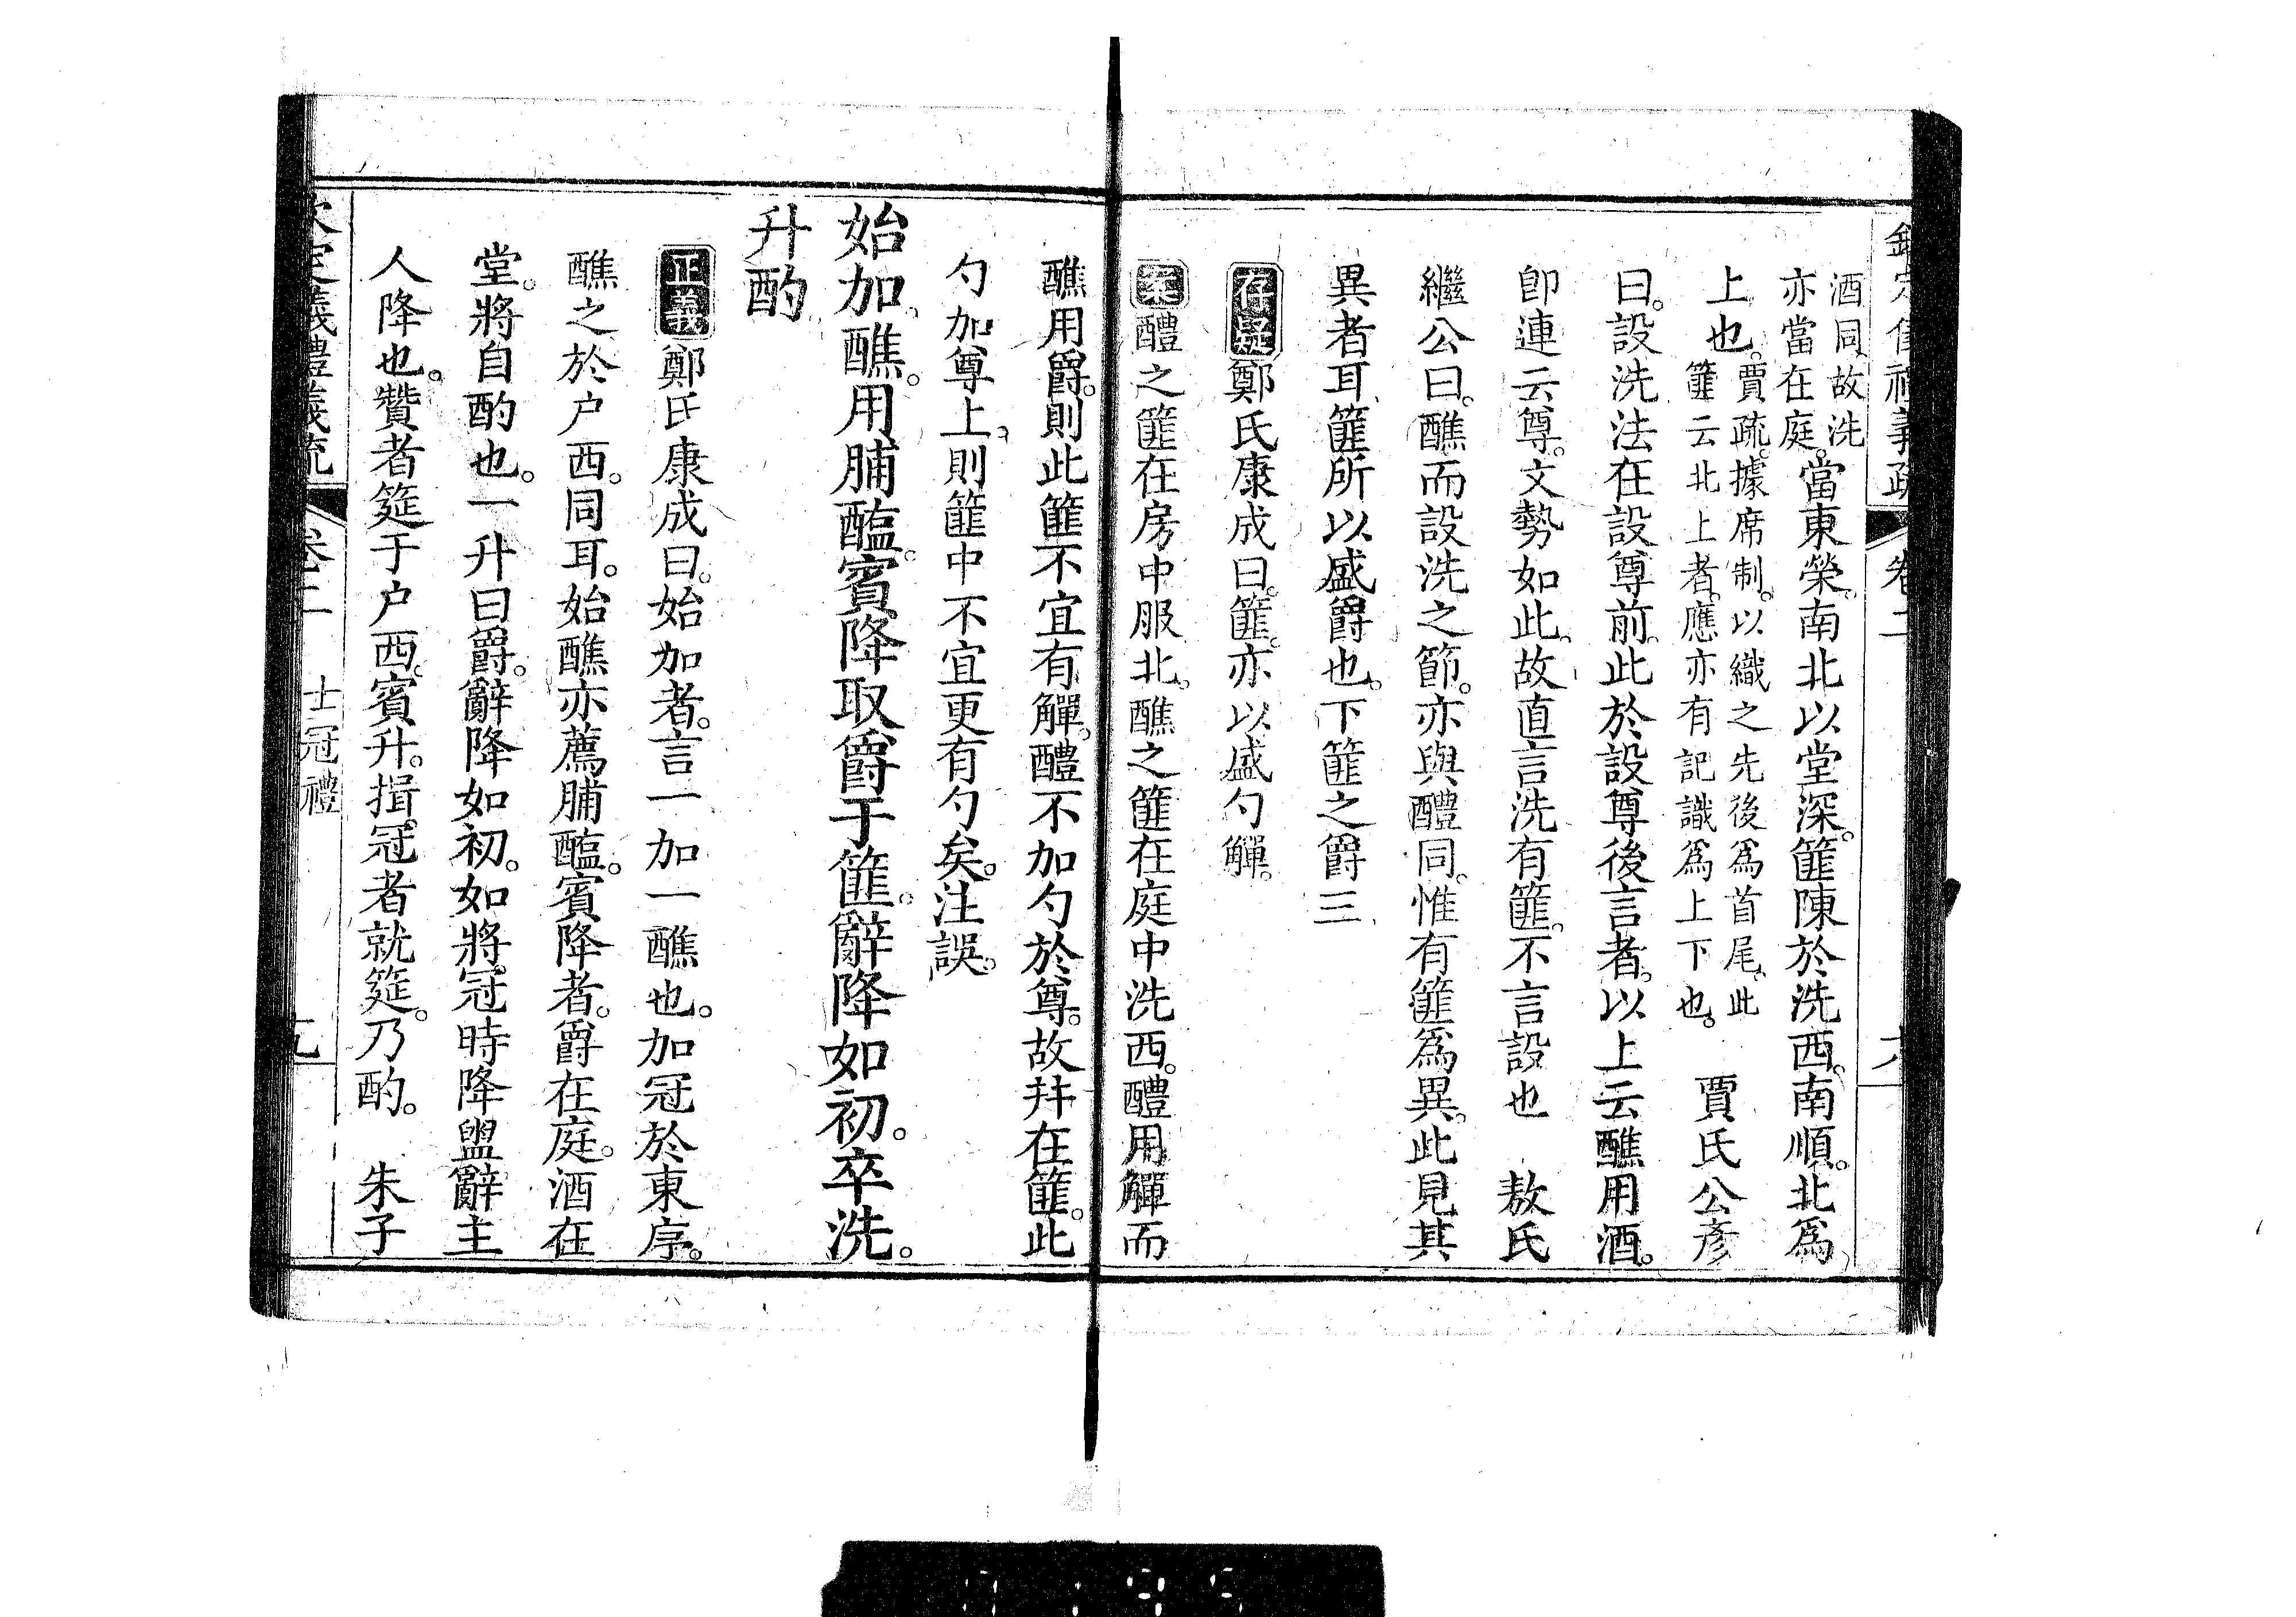 酒同。故洗
亦當在庭。
當東榮。南北以堂深。篚陳於洗西。南順。北爲
上也。
賈疏。據席制。以織之先後爲首尾。此
篚云北上者。應亦有記識爲上下也。
賈氏公彥
曰。設洗法在設尊前。此於設尊後言者。以上云醮用酒。
卽連云尊。文勢如此。故直言洗有篚。不言設也 敖氏
繼公曰。醮而設洗之節。亦與醴同。惟有篚爲異。此見其
異者耳。篚所以盛爵也。下篚之爵三
存疑鄭氏康成曰。篚。亦以盛勺觶。
案醴之篚在房中服北。醮之篚在庭中洗西。醴用觶而
醮用爵。則此篚不宜有觶。醴不加勺於尊。故幷在篚。此
勺加尊上。則篚中不宜更有勺矣。注誤。
始加。醮。用脯醢。賓降。取爵于篚。辭降如初。卒洗。
升酌
正義鄭氏康成曰。始加者。言一加一醮也。加冠於東序。
醮之於户西。同耳。始醮亦薦脯醢。賓降者。爵在庭。酒在
堂。將自酌也。一升曰爵。辭降如初。如將冠時降盥辭主
人降也。贊者筵于户西。賓升。揖冠者就筵。乃酌。 朱子
欽定儀禮義疏 卷二 士冠禮